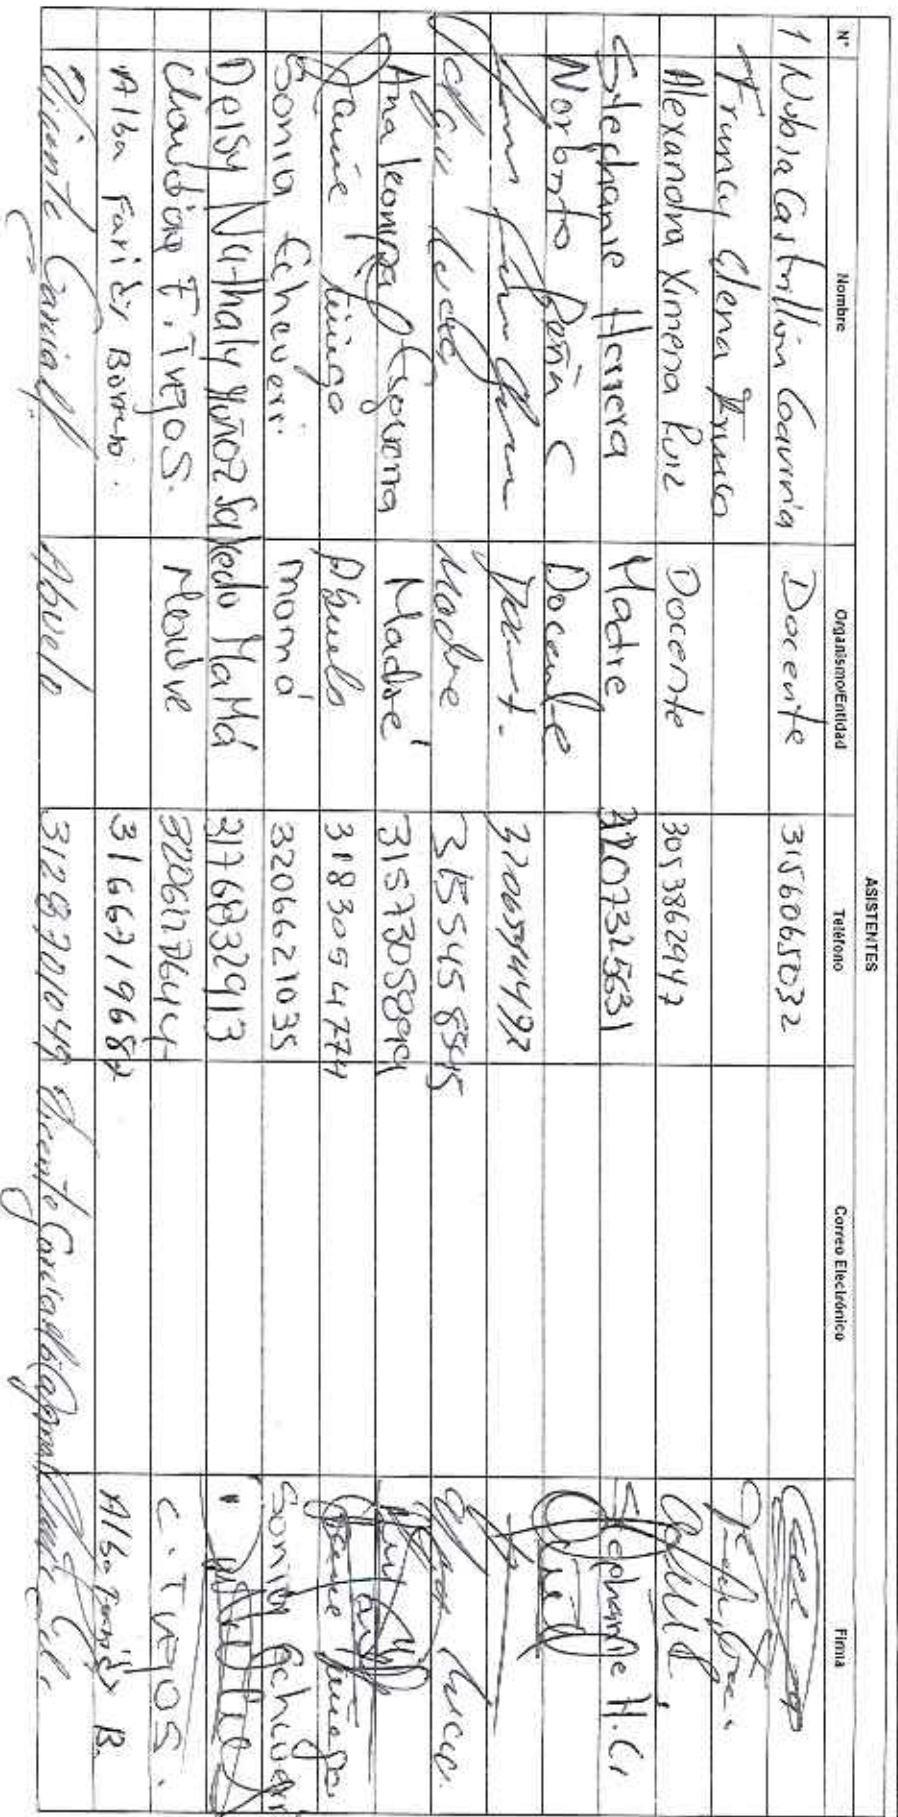 ASISTENTES
N° Nombre Organismo/Entidad Teléfono Correo Electrónico Firma
1 Nubia Castrillón Gaviria Docente 3156065032
Francy Elena
Alexandra Ximena Ruiz Docente 3053862947
Stephanie Herrera Madre 3207325631 Stephanie H.G
Norberto Peña C Docente
3206594492
Lucia Madre 3155458545
Ana Leonisa Esguerra Madre 3157305899
Jaime Zuñiga Abuelo 3183054774 Jaime Zuñiga
Sonia Echeverri mamá 3206621035 Sonia Echeverri
Deisy Nathaly Muñoz Salcedo MaMá 3176832913
Claudia F. Trejos. Madre 3206127644 C. Trejos.
Alba Faridy Borrero. 3166719682 Alba Faridy B.
Vicente García Abuelo 3128701049